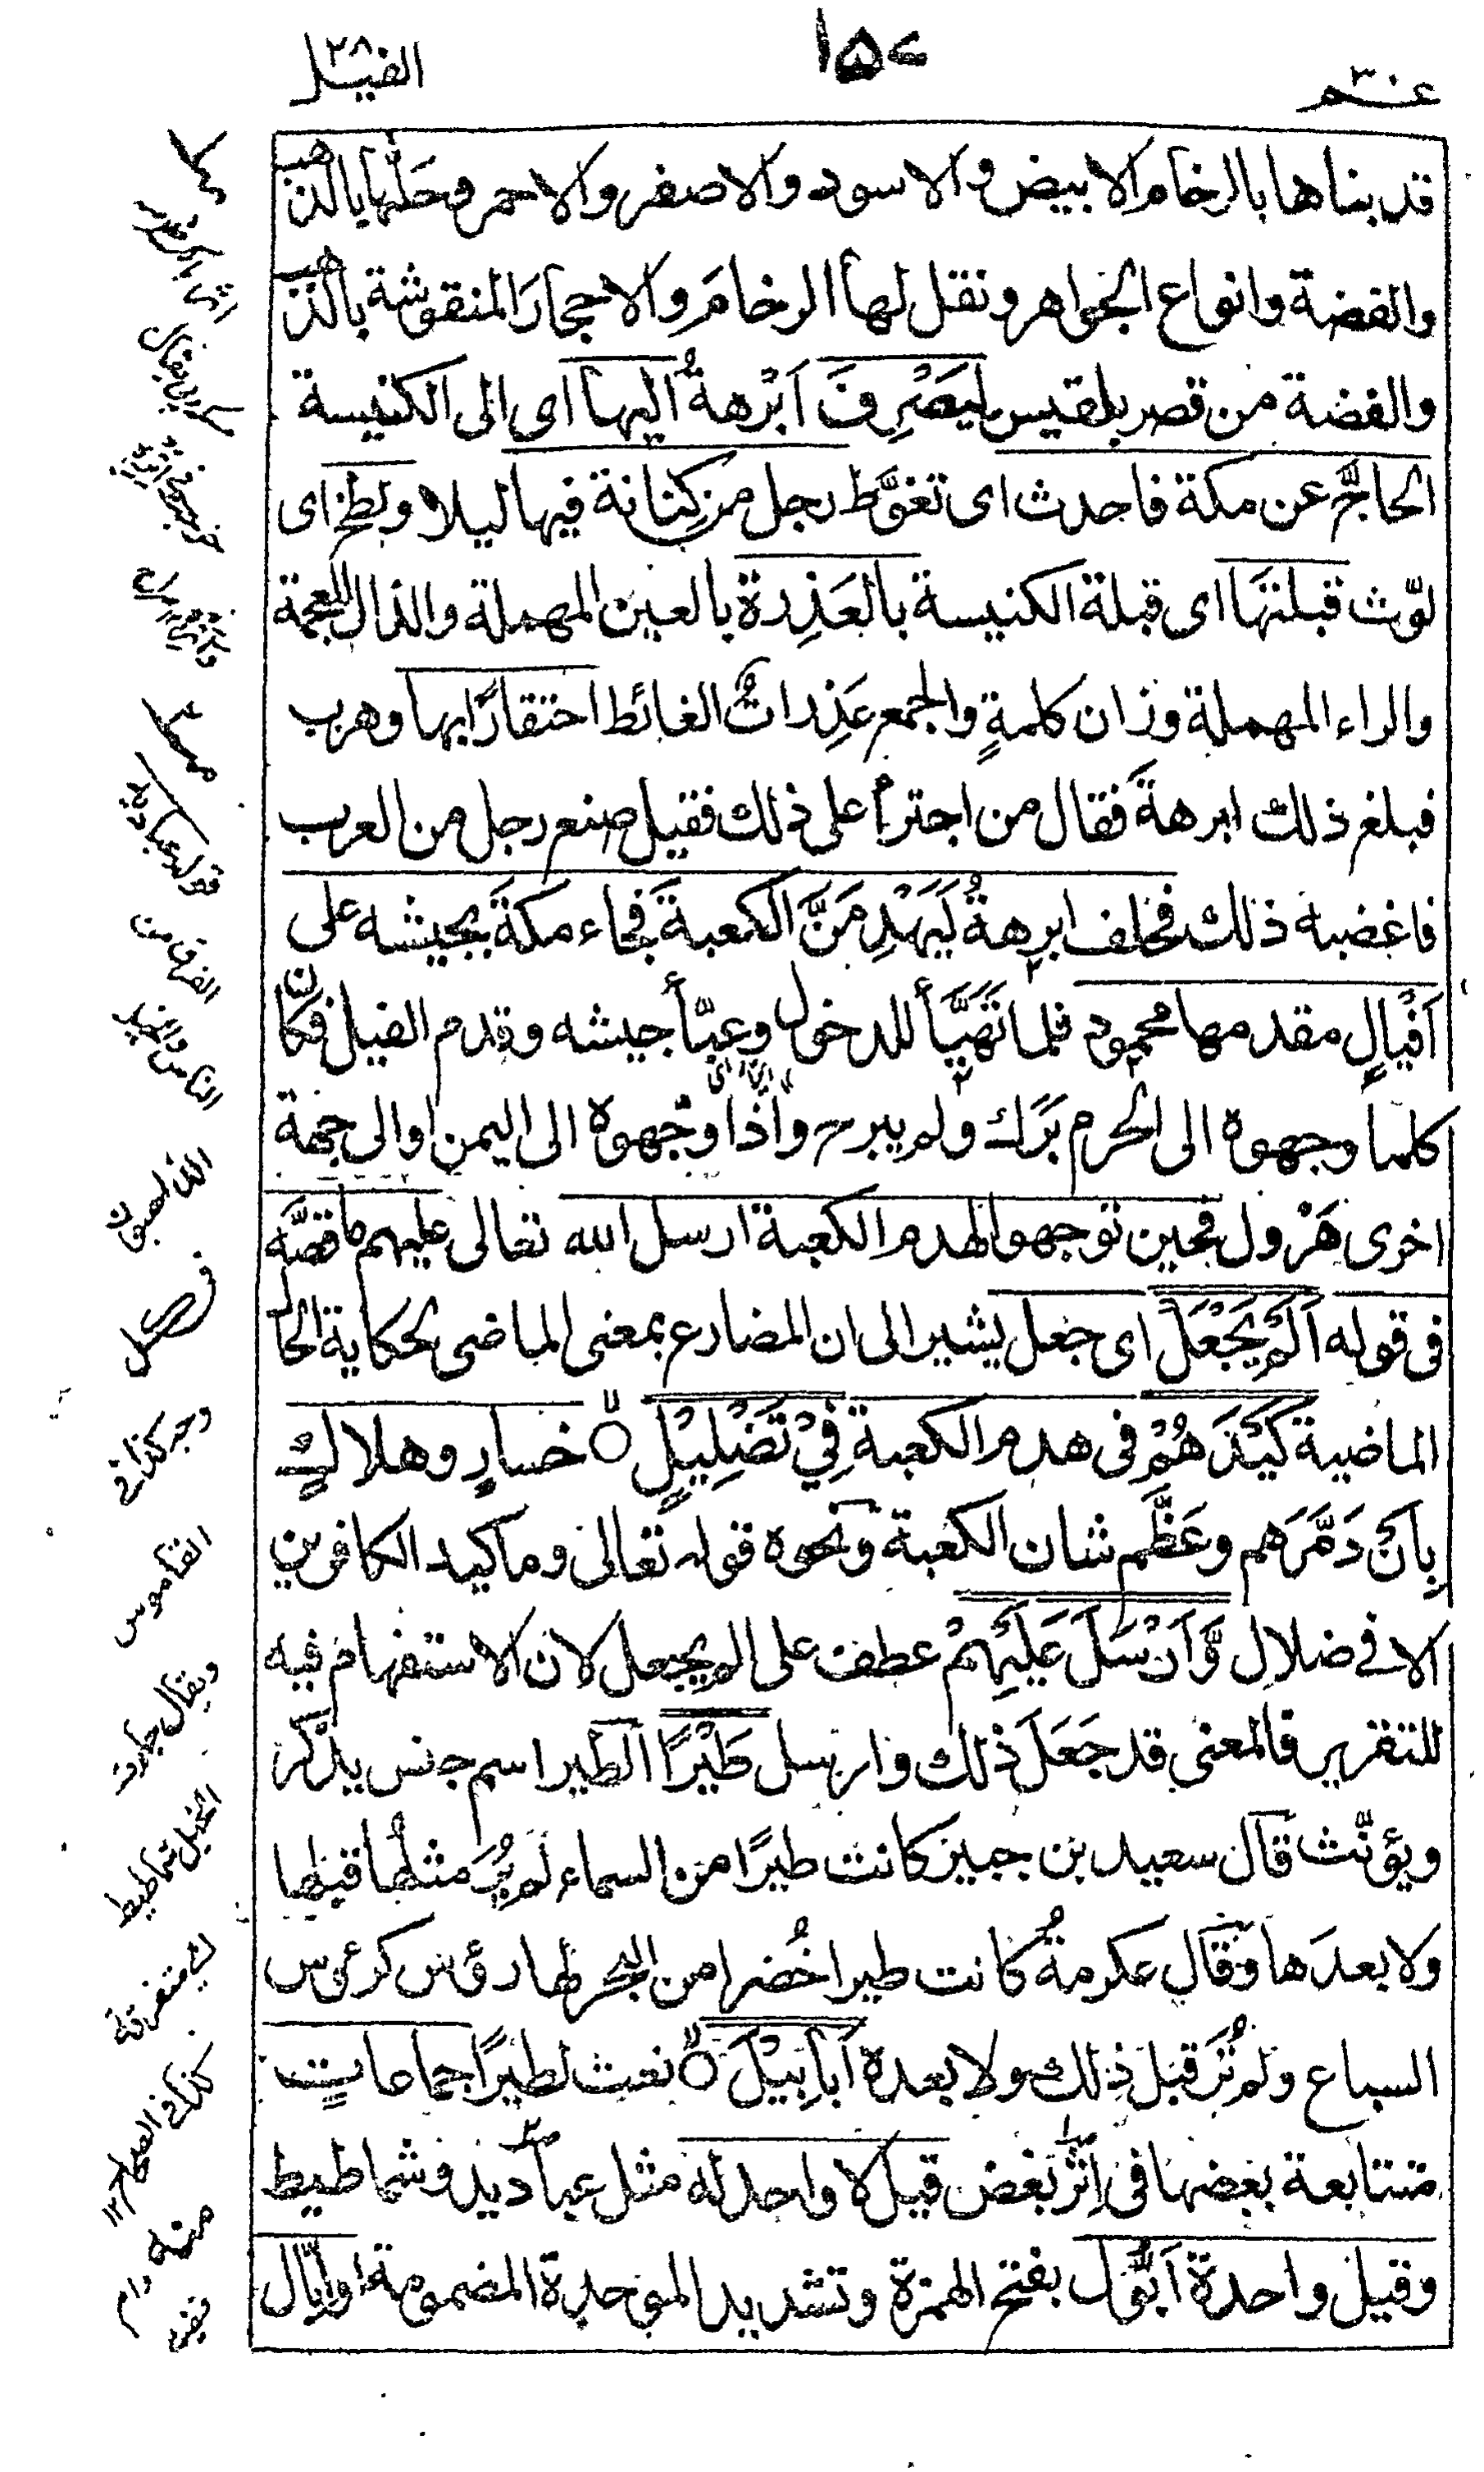 عم ٣٠
١٥٧
الفيل ٣٨
قد بناها بالرخام الابيض والاسود والاصفر والاحمر وحَلّها بالذهب
والفضة وانواع الجواهر ونقل لها الرخامَ والاحجارَ المنقوشة بالذهب
والفضة من قصر بلقيس ليَصْرِفَ اَبْرَهةُ اليها اى الى الكنيسة
الحاجَّ عن مكة فاحدث اى تغوَّط رجل من كِنانة فيها ليلا ولطخ اى
لوّث قبلتَها اى قبلة الكنيسة بالعَذِرة بالعين المهملة والذال المعجمة
والراء المهملة وزان كلمةٍ والجمع عَذِراتٌ الغائط احتقارًا بها وهرب
فبلغ ذلك ابرهةَ فقال من اجترأ على ذلك فقيل صنع رجل من العرب
فاغضبه ذلك فحلف ابرهةُ لَيَهْدِمَنَّ الكعبةَ فجاء مكةَ بجيشه على
اَفْيَالٍ مقدمها محمود فلما تَهَيَّأَ للدخول وعبّأ جيشه وقدم الفيل فكان
كلما وجهوه الى الحرم بَرَك ولم يبرح واذا وجهوه الى اليمن او الى جهة
اخرى هَرْوَل فحين توجهوا لهدم الكعبة ارسل الله تعالى عليهم ما قصَّه
فى قوله اَلَمْ يَجْعَلْ اى جعل يشير الى ان المضارع بمعنى الماضى لحكاية الحال
الماضية كَيْدَهُمْ فى هدم الكعبة فِيْ تَضْلِيْلٍ ۝ خسارٍ وهلاكٍ
بِاَنْ دَمَّرَهم وعَظَّم شان الكعبة ونحوه قوله تعالى وما كيد الكافرين
الا فى ضلال وَّاَرْسَلَ عَلَيْهِمْ عطف على الم يجعل لان الاستفهام فيه
للتقرير فالمعنى قد جَعَلَ ذلك وارسل طَيْرًا الطير اسم جنس يذكّر
ويؤنّث قال سعيد بن جبير كانت طيرًا من السماء لم يُرَ مثلُها قبلها
ولا بعدَها وقال عكرمةُ كانت طيرا خُضرا من البحر لها رؤس كرءوس
السباع ولم تُرَ قبل ذلك ولا بعده اَبَابِيْلَ ۝ نعت لطيرًا جماعاتٍ
متتابعة بعضها فى اِثْرِ بعض قيل لا واحد له مثل عباديد وشماطيط
وقيل واحدة اَبُّوْل بفتح الهمزة وتشديد الموحدة المضمومة او اِبَّال
قوله عباديد
الفرق من
الناس والخيل
الذاهبون
فى كل
وجه كذا فى
القاموس
ويقال جاءت
الخيل شماطيط
اى متفرقة
كذا فى الصحاح ١٢
منه